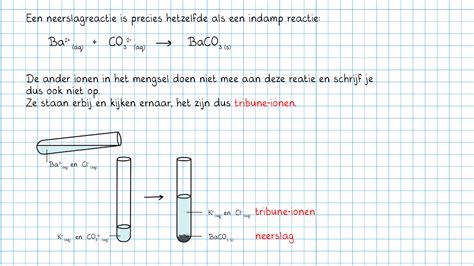 Een neerslagreactie is precies hetzelfde als een indamp reactie:
Ba²⁺(aq) + CO₃²⁻(aq) → BaCO₃(s)
De ander ionen in het mengsel doen niet mee aan deze reatie en schrijf je
dus ook niet op.
Ze staan erbij en kijken ernaar, het zijn dus tribune-ionen.
Ba²⁺(aq) en Cl⁻(aq)
K⁺(aq) en Cl⁻(aq) tribune-ionen
K⁺(aq) en CO₃²⁻(aq)
BaCO₃(s) neerslag